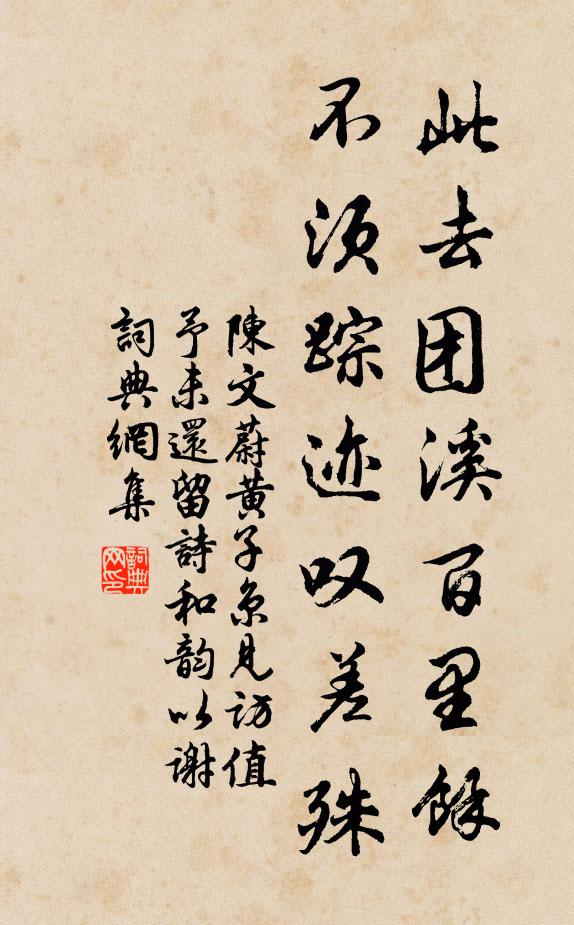 此去团溪百里餘
不须踪迹叹差殊
陳文蔚黄子京見訪值
予未還留詩和韵以謝
詞典網集
詞典网印